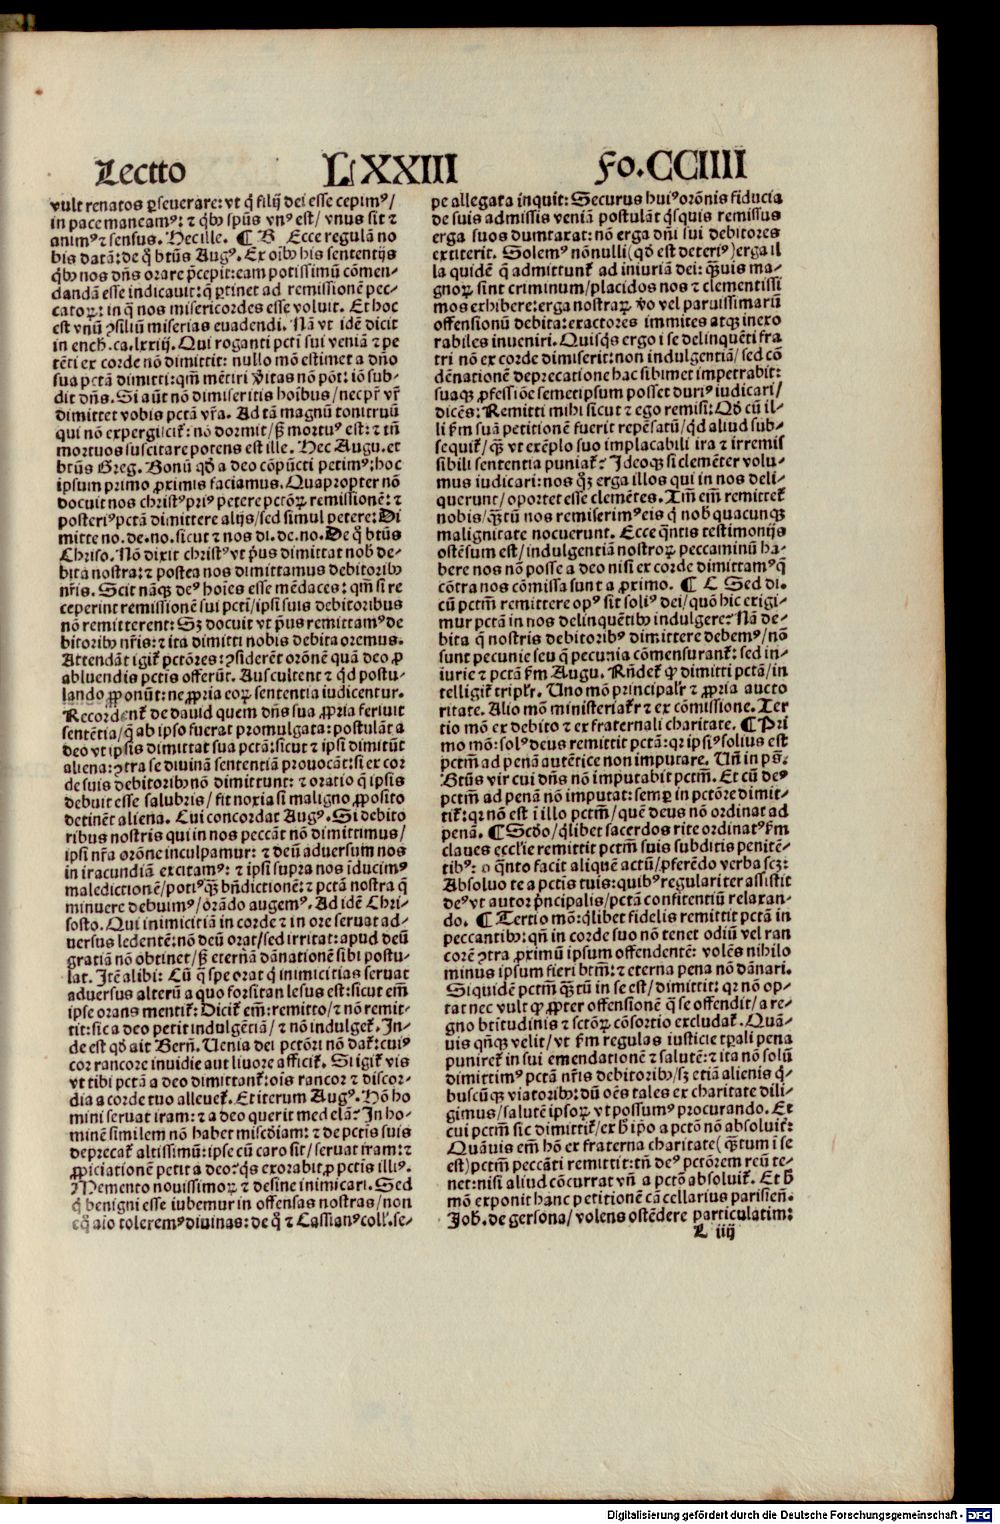 Lectio LXXIII Fo.CCIIII
vult renatos ꝑseuerare: vt q̇ filij dei esse cepimꝰ/
in pace maneamꝰ: ⁊ qͥbꝫ spūs vnꝰ est/ vnus sit ⁊
animꝰ ⁊ sensus. Hec ille. ¶ B Ecce regulā no
bis datā: de q̇ btūs Augꝰ. Ex oībꝫ his sententijs
qͥbꝫ nos dn̄s orare p̄cepit: eam potissimū cōmen-
dandā esse indicauit: q̄ ꝑtinet ad remissionē pec-
catoꝝ: in q̄ nos misericordes esse voluit. Et hoc
est vnū ꝯsiliū miserias euadendi. Nā vt idē dicit
in ench. ca. lxxiij. Qui roganti pctī sui veniā ⁊ pe
tēti ex corde nō dimittit: nullo mō estimet a dn̄o
sua pctā dimitti: qm̄ mētiri v̄itas nō pōt: iō sub-
dit dn̄s. Si aūt nō dimiseritis hoībus/ nec pr̄ vr̄
dimittet vobis pctā vr̄a. Ad tā magnū tonitruū
qui nō expergiscit᷑: nō dormit/ sꝫ mortuꝰ est: ⁊ tn̄
mortuos suscitare potens est ille. Hec Augu. et
btūs Greg. Bonū qd̄ a deo cōpūcti petimꝰ: hoc
ipsum primo ꝓximis faciamus. Quapropter nō
docuit nos christꝰ priꝰ petere pctōꝝ remissionē: ⁊
posteriꝰ pctā dimittere alijs/ sed simul petere: Di
mitte no. de. no. sicut ⁊ nos di. de. no. De q̇ btūs
Chriso. Nō dixit christꝰ vt pͥus dimittat nob̄ de-
bita nostra: ⁊ postea nos dimittamus debitoribꝫ
nr̄is. Scit nāqꝫ deꝰ hoīes esse mēdaces: qm̄ si re
ceperint remissionē sui pctī/ ipsi suis debitoribus
nō remitterent: Sꝫ docuit vt pͥus remittamꝰ de
bitoribꝫ nr̄is: ⁊ ita dimitti nobis debita oremus.
Attendāt igit᷑ pctōres: ꝯsiderēt orōnē quā deo ꝓ
abluendis pctis offerūt. Auscultent ⁊ qd̄ postu-
lando ꝓponūt: ne ꝓpria eoꝝ sententia iudicentur.
Recordent᷑ de dauid quem dn̄s sua ꝓpria feriuit
sentētia/ q̄ ab ipso fuerat promulgata: postulāt a
deo vt ipsis dimittat sua pctā: sicut ⁊ ipsi dimitūt
aliena: ꝯtra se diuinā sententiā prouocāt: si ex cor
de suis debitoribꝫ nō dimittunt: ⁊ oratio q̄ ipsis
debuit esse salubris/ fit noxia si maligno ꝓposito
detinēt aliena. Cui concordat Augꝰ. Si debito
ribus nostris qui in nos peccāt nō dimittimus/
ipsi nr̄a orōne inculpamur: ⁊ deū aduersum nos
in iracundiā excitamꝰ: ⁊ ipsi supra nos īducimꝰ
maledictionē/ potiꝰ qꝫ bn̄dictionē: ⁊ pctā nostra q̄
minuere debuimꝰ/ orādo augemꝰ. Ad idē Chri-
sosto. Qui inimicitiā in corde ⁊ in ore seruat ad-
uersus ledentē: nō deū orat/ sed irritat: apud deū
gratiā nō obtinet/ sꝫ eternā dānationē sibi postu-
lat. Itē alibi: Cū q̄ spe orat q̇ inimicitias seruat
aduersus alterū a quo forsitan lesus est: sicut em̄
ipse orans mentit᷑: Dicit em̄: remitto/ ⁊ nō remit-
tit: sic a deo petit indulgētiā/ ⁊ nō indulget᷑. In-
de est qd̄ ait Bern̄. Uenia dei pctōri nō dat᷑: cuiꝰ
cor rancore inuidie aut liuore afficit᷑. Si igit᷑ vis
vt tibi pctā a deo dimittant᷑: oīs rancor ⁊ discor-
dia a corde tuo alleuet᷑. Et iterum Augꝰ. Hō ho
mini seruat iram: ⁊ a deo querit medelā? In ho-
minē similem nō habet miscd̄iam: ⁊ de pctīs suis
deprecat᷑ altissimū: ipse cū caro sit/ seruat iram: ⁊
ꝓpiciationē petit a deo: qͥs exorabit ꝓ pctis illiꝰ.
Memento nouissimoꝝ ⁊ desine inimicari. Sed
q̇ benigni esse iubemur in offensas nostras/ non
eq̄ aīo toleremꝰ diuinas: de q̇ ⁊ Cassianꝰ coll̄. se-
pe allegata inquit: Securus huiꝰ orōnis fiducia
de suis admissis veniā postulāt qͥsquis remissus
erga suos dumtaxat: nō erga dn̄i sui debitores
extiterit. Solemꝰ nōnulli (qd̄ est deteriꝰ) erga il
la quidē q̄ admittunt᷑ ad iniuriā dei: qꝫuis ma-
gnoꝝ sint criminum/ placidos nos ⁊ clementissi
mos exhibere: erga nostraꝝ v̄o vel paruissimarū
offensionū debita: exactores immites atqꝫ inexo
rabiles inueniri. Quisqͥs ergo i se delinquēti fra
tri nō ex corde dimiserit: non indulgentiā/ sed cō
dēnationē deprecatione hac sibimet impetrabit:
suaqꝫ ꝓfessiōe semetipsum posset duriꝰ iudicari/
dicēs: Remitti mihi sicut ⁊ ego remisi: Qd̄ cū il-
li ẜm suā petitionē fuerit repēsatū/ qͥd aliud sub-
sequit᷑/ qꝫ vt exēplo suo implacabili ira ⁊ irremis
sibili sententia puniat᷑? Ideoqꝫ si clemēter volu-
mus iudicari: nos qꝫ erga illos qui in nos deli-
querunt/ oportet esse clemētes. Tm̄ em̄ remittet᷑
nobis/ qꝫtū nos remiserimꝰ eis q̇ nob̄ quacunqꝫ
malignitate nocuerunt. Ecce qͣntis testimonijs
ostēsum est/ indulgentiā nostroꝝ peccaminū ha-
bere nos nō posse a deo nisi ex corde dimittamꝰ q̄
cōtra nos cōmissa sunt a ꝓximo. ¶ C Sed di.
cū pctm̄ remittere opꝰ sit soliꝰ dei/ quō hic exigi-
mur pctā in nos delinquētibꝫ indulgere? Nā de-
bita q̄ nostris debitoribꝰ dimittere debemꝰ/ nō
sunt pecunie seu q̄ pecunia cōmensurant᷑: sed in-
iurie ⁊ pctā ẜm Augu. Rn̄det᷑ ꝙ dimitti pctā/ in
telligit᷑ triplr̄. Uno mō principalr̄ ⁊ ꝓpria aucto
ritate. Alio mō ministerialr̄ ⁊ ex cōmissione. Ter
tio mō ex debito ⁊ ex fraternali charitate. ¶ Pri
mo mō: solꝰ deus remittit pctā: qr ipsiꝰ solius est
pctm̄ ad penā autētice non imputare. Un̄ in ps̄.
Btūs vir cui dn̄s nō imputabit pctm̄. Et cū deꝰ
pctm̄ ad penā nō imputat: semꝑ in pctōre dimit-
tit᷑: qr nō est ī illo pctm̄/ quē deus nō ordinat ad
penā. ¶ Scd̄o/ qͥlibet sacerdos rite ordinatꝰ ẜm
claues eccl̄ie remittit pctm̄ suis subditis penitē-
tibꝰ: ꝓ qͣnto facit aliquē actū/ ꝓferēdo verba scꝫ:
Absoluo te a pctīs tuis: quibꝰ regulariter assistit
deꝰ vt autor pͥncipalis/ pctā confitentiū relaxan-
do. ¶ Tertio mō: qͥlibet fidelis remittit pctā in
peccantibꝫ: qn̄ in corde suo nō tenet odiū vel ran
corē ꝯtra ꝓximū ipsum offendentē: volēs nihilo
minus ipsum fieri btm̄: ⁊ eterna pena nō dānari.
Siquidē pctm̄ qꝫtū in se est/ dimittit: qr nō op-
tat nec vult ꝙ ꝓpter offensionē q̄ se offendit/ a re-
gno btitudinis ⁊ sctōꝝ cōsortio excludat᷑. Quā-
uis qn̄qꝫ velit/ vt ẜm regulas iusticie tꝑali pena
puniret᷑ in sui emendationē ⁊ salutē: ⁊ ita nō solū
dimittimꝰ pctā nr̄is debitoribꝫ/ sꝫ etiā alienis qͥ-
buscūqꝫ viatoribꝫ: dū oēs tales ex charitate dili-
gimus/ salutē ipsoꝝ vt possumꝰ procurando. Et
cui pctm̄ sic dimittit᷑/ ex h̄ ip̄o a pctō nō absoluit᷑.
Quāuis em̄ hō ex fraterna charitate (qꝫtum ī se
est) pctm̄ peccāti remittit: tn̄ deꝰ pctōrem reū te-
net: nisi aliud cōcurrat vn̄ a pctō absoluit᷑. Et h̄
mō exponit hanc petitionē cācellarius parisien̄.
Joh̄. de gersona/ volens ostēdere particulatim:
L iiij
Digitalisierung gefördert durch die Deutsche Forschungsgemeinschaft - DFG